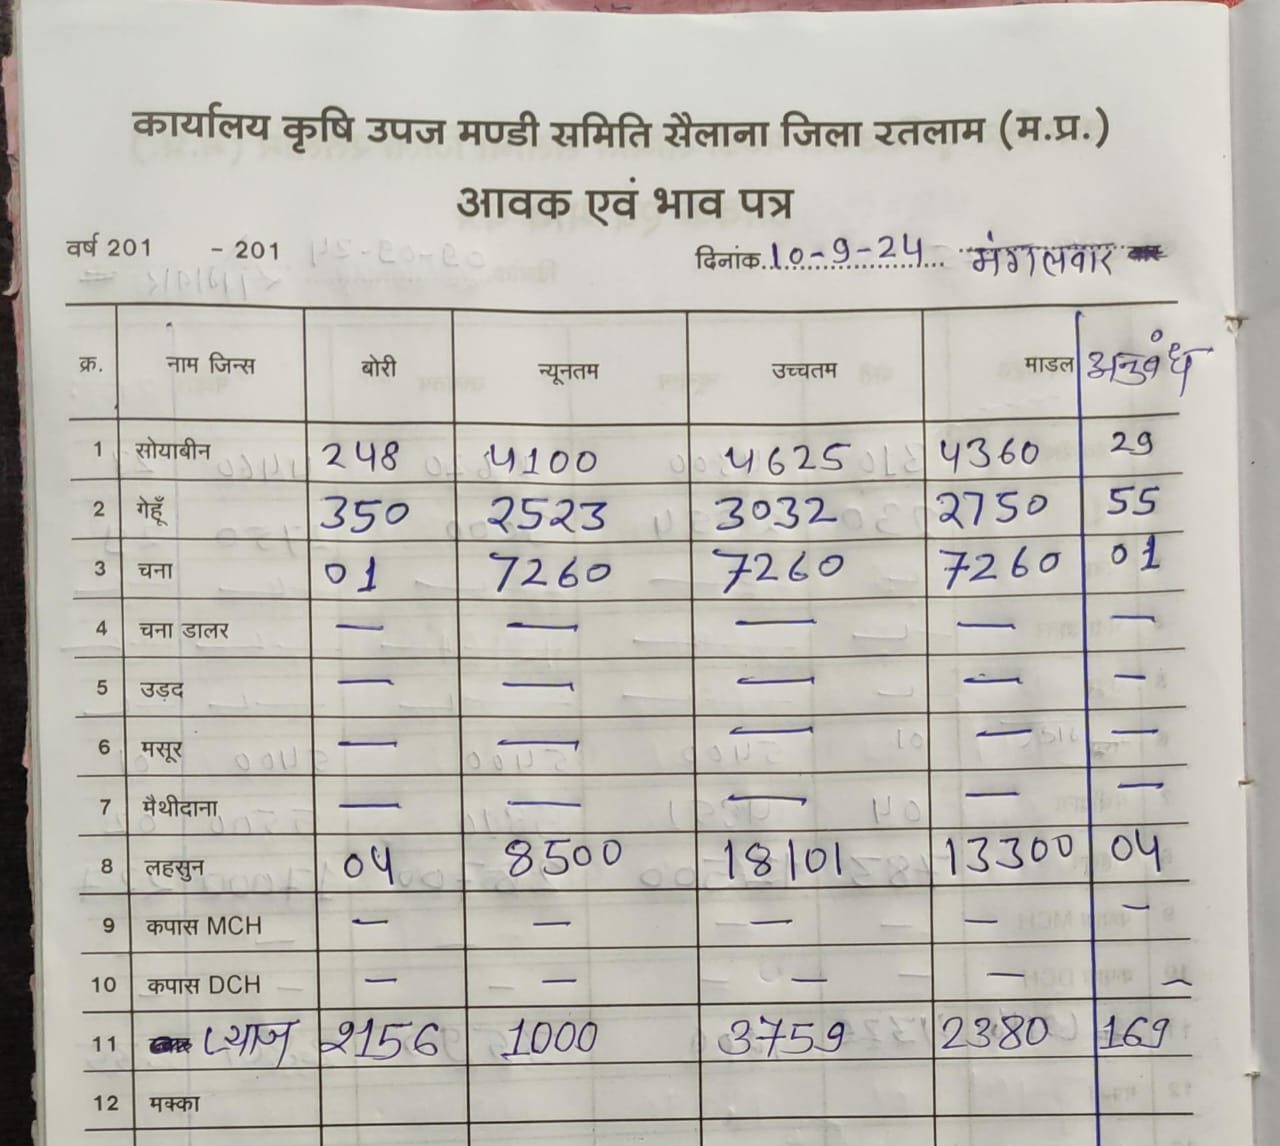 कार्यालय कृषि उपज मण्डी समिति सैलाना जिला रतलाम (म.प्र.)
आवक एवं भाव पत्र
वर्ष 201 - 201 दिनांक 10-9-24 मंगलवार
क्र. नाम जिन्स बोरी न्यूनतम उच्चतम माडल अनुबंध
1 सोयाबीन 248 4100 4625 4360 29
2 गेहूँ 350 2523 3032 2750 55
3 चना 01 7260 7260 7260 01
4 चना डालर — — — — —
5 उड़द — — — — —
6 मसूर — — — — —
7 मैथीदाना — — — — —
8 लहसुन 04 8500 18101 13300 04
9 कपास MCH — — — — —
10 कपास DCH — — — — —
11 प्याज 2156 1000 3759 2380 169
12 मक्का